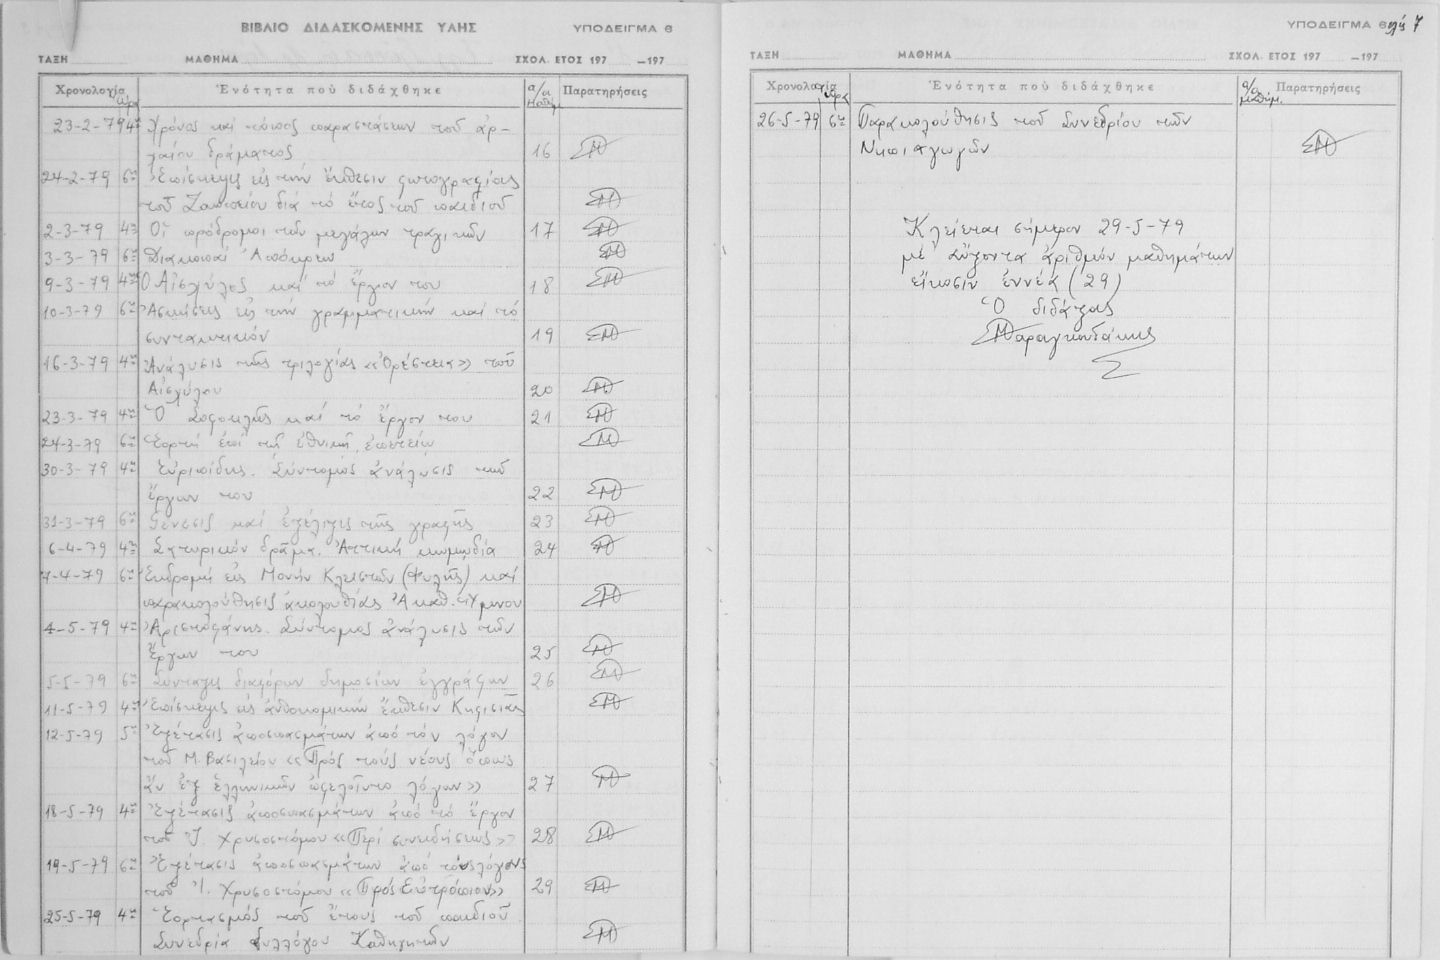 ΒΙΒΛΙΟ ΔΙΔΑΣΚΟΜΕΝΗΣ ΥΛΗΣ ΥΠΟΔΕΙΓΜΑ 6
ΤΑΞΗ ΜΑΘΗΜΑ ΣΧΟΛ. ΕΤΟΣ 197 —197
Χρονολογία ὥρα Ἑνότητα ποὺ διδάχθηκε α/α μαθήμ. Παρατηρήσεις
23-2-79 4η Χρόνος καί τόπος παραστάσεων τοῦ ἀρ-
χαίου δράματος 16
24-2-79 6η Ἐπίσκεψις εἰς τήν ἔκθεσιν φωτογραφίας
τοῦ Ζαππείου διά τό ἔτος τοῦ παιδιοῦ
2-3-79 4η Οἱ πρόδρομοι τῶν μεγάλων τραγικῶν 17
3-3-79 6η Διακοπαί Ἀπόκρεω
9-3-79 4η Ὁ Αἰσχύλος καί τό ἔργον του 18
10-3-79 6η Ἀσκήσεις εἰς τήν γραμματικήν καί τό
συντακτικόν 19
16-3-79 4η Ἀνάλυσις τῆς τριλογίας «Ὀρέστεια» τοῦ
Αἰσχύλου 20
23-3-79 4η Ὁ Σοφοκλῆς καί τό ἔργον του 21
24-3-79 6η Ἑορτή ἐπί τῇ ἐθνικῇ ἐπετείῳ
30-3-79 4η Εὐριπίδης. Σύντομος ἀνάλυσις τῶν
ἔργων του 22
31-3-79 6η Γένεσις καί ἐξέλιξις τῆς γραφῆς 23
6-4-79 4η Σατυρικόν δρᾶμα. Ἀττική κωμῳδία 24
7-4-79 6η Ἐκδρομή εἰς Μονήν Κλειστῶν (Φυλῆς) καί
παρακολούθησις ἀκολουθίας Ἀκαθ. Ὕμνου
4-5-79 4η Ἀριστοφάνης. Σύντομος ἀνάλυσις τῶν
ἔργων του 25
5-5-79 6η Σύνταξις διαφόρων δημοσίων ἐγγράφων 26
11-5-79 4η Ἐπίσκεψις εἰς ἀνθοκομικήν ἔκθεσιν Κηφισιᾶς
12-5-79 5η Ἐξέτασις ἀποσπασμάτων ἀπό τόν λόγον
τοῦ Μ. Βασιλείου «Πρός τούς νέους ὅπως
ἄν ἐξ ἑλληνικῶν ὠφελοῖντο λόγων» 27
18-5-79 4η Ἐξέτασις ἀποσπασμάτων ἀπό τό ἔργον
τοῦ Ἰ. Χρυσοστόμου «Περί συνειδήσεως» 28
19-5-79 6η Ἐξέτασις ἀποσπασμάτων ἀπό τούς λόγους
τοῦ Ἰ. Χρυσοστόμου «Πρός Εὐτρόπιον» 29
25-5-79 4η Ἑορτασμός τοῦ ἔτους τοῦ παιδιοῦ
Συνεδρία Συλλόγου Καθηγητῶν
ΥΠΟΔΕΙΓΜΑ 6 7
ΤΑΞΗ ΜΑΘΗΜΑ ΣΧΟΛ. ΕΤΟΣ 197 —197
Χρονολογία ὥρα Ἑνότητα ποὺ διδάχθηκε α/α μαθήμ. Παρατηρήσεις
26-5-79 6η Παρακολούθησις τοῦ Συνεδρίου τῶν
Νηπιαγωγῶν
Κλείεται σήμερον 29-5-79
μέ αὔξοντα ἀριθμόν μαθημάτων
εἴκοσιν ἐννέα (29)
Ὁ διδάξας